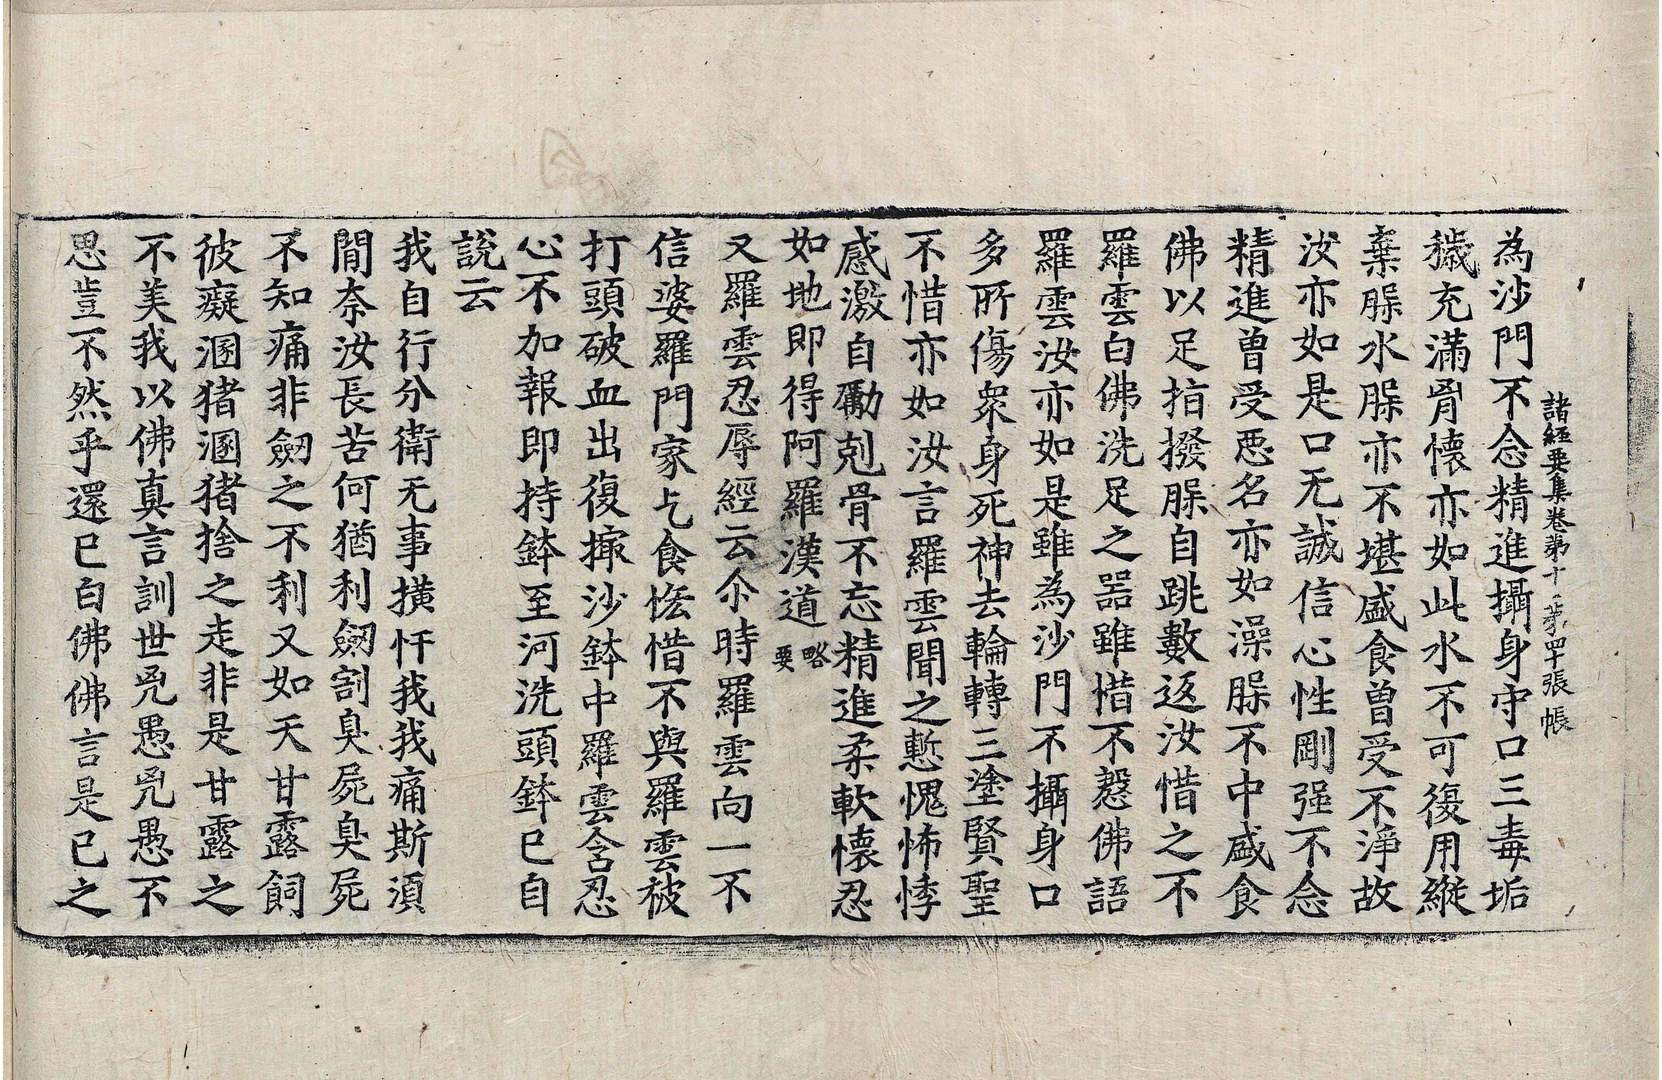 諸経要集卷苐十 苐四十張 帳
為沙門不念精進攝身守口三毒垢
穢充滿胷懷亦如此水不可復用縱
棄脲水脲亦不堪盛食曾受不淨故
汝亦如是口无誠信心性剛强不念
精進曾受惡名亦如澡脲不中盛食
佛以足拍撥脲自跳數返汝惜之不
羅雲白佛洗足之噐雖惜不懃佛語
羅雲汝亦如是雖為沙門不攝身口
多所傷衆身死神去輪轉三塗賢聖
不惜亦如汝言羅雲聞之慙愧怖悸
感激自勵剋骨不忘精進柔軟懷忍
如地即得阿羅漢道略要
又羅雲忍辱經云尒時羅雲向一不
信婆羅門家乞食恡惜不與羅雲被
打頭破血出復掫沙鉢中羅雲含忍
心不加報即持鉢至河洗頭鉢已自
說云
我自行分衛无事橫忓我我痛斯湏
閒奈汝長苦何猶利劒割臭屍臭屍
不知痛非劒之不利又如天甘露飼
彼癡溷猪溷猪捨之走非是甘露之
不美我以佛真言訓世兇愚兇愚不
思豈不然乎還已白佛佛言是已之